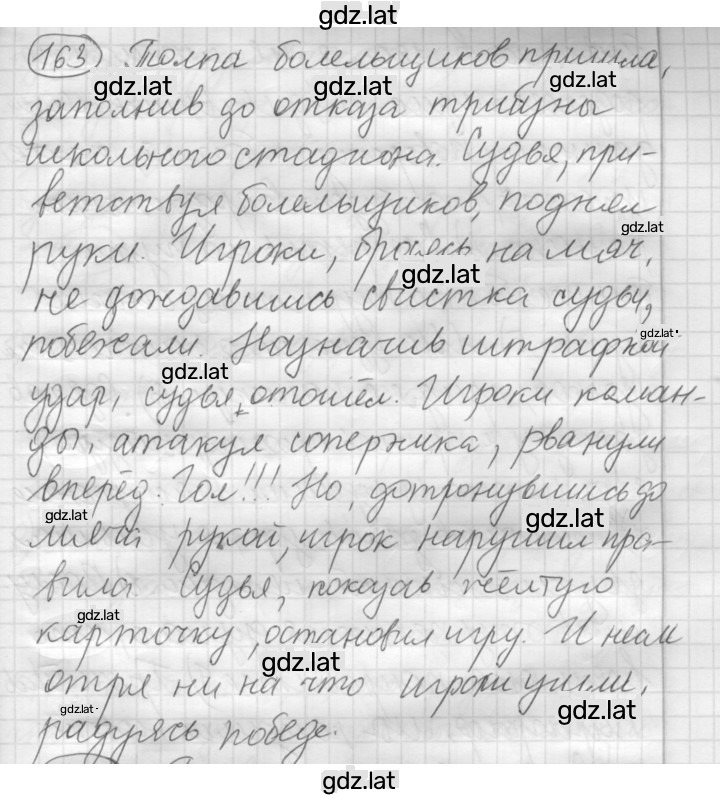 gdz.lat
163) Толпа болельщиков пришла,
gdz.lat gdz.lat gdz.lat
заполнив до отказа трибуны
школьного стадиона. Судья, при-
ветствуя болельщиков, поднял
gdz.lat
руки. Игроки, бросясь на мяч,
gdz.lat
не дождавшись свистка судьи,
gdz.lat
побежали. Назначив штрафной
gdz.lat
удар, судья отошёл. Игроки коман-
ды, атакуя соперника, рванули
вперёд. Гол!!! Но, дотронувшись до
gdz.lat gdz.lat
мяча рукой, игрок нарушил пра-
вила. Судья, показав жёлтую
gdz.lat
карточку, остановил игру. И несм
gdz.lat
отря ни на что игроки ушли,
gdz.lat gdz.lat
радуясь победе.
gdz.lat